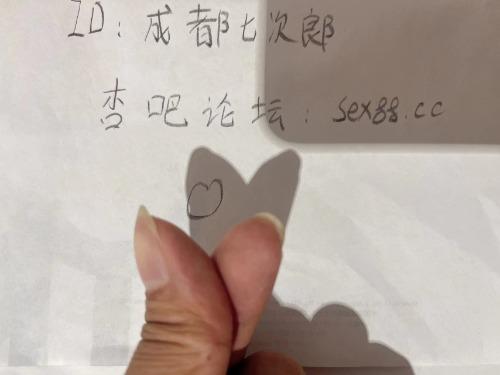 ID：成都七次郎
杏吧论坛：sex88.cc